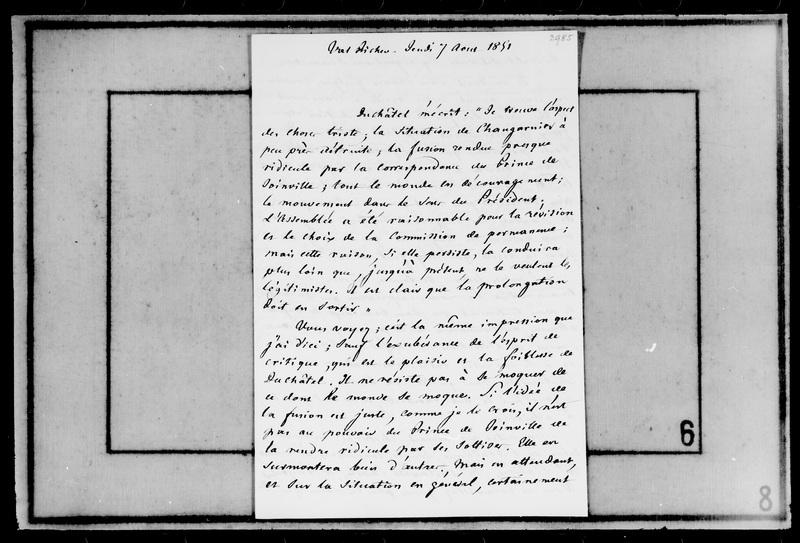 Val Richer - Jeudi 7 Août 1851
2985
Duchâtel m'écrit : "Je trouve l'aspect
des choses triste ; la situation de Changarnier à
peu près détruite ; la fusion rendue presque
ridicule par la correspondance du Prince de
Joinville ; tout le monde en découragement ;
le mouvement dans le sens du Président.
L'Assemblée a été raisonnable pour la révision
et le choix de la Commission de permanence ;
mais cette raison, si elle persiste, la conduira
plus loin que, jusqu'à présent, ne le veulent les
légitimistes. Il est clair que la prolongation
doit en sortir "
Vous voyez ; c'est la même impression que
j'ai d'ici ; sauf l'exubérance de l'esprit de
critique, qui est le plaisir et la foiblesse de
Duchâtel. Il ne résiste pas à se moquer de
ce dont le monde se moque. Si l'idée de
la fusion est juste, comme je le crois, il n'est
pas au pouvoir du Prince de Joinville de
la rendre ridicule par ses sottises. Elle en
surmontera bien d'autres. Mais en attendant,
et sur la situation en général, certainement
6
8